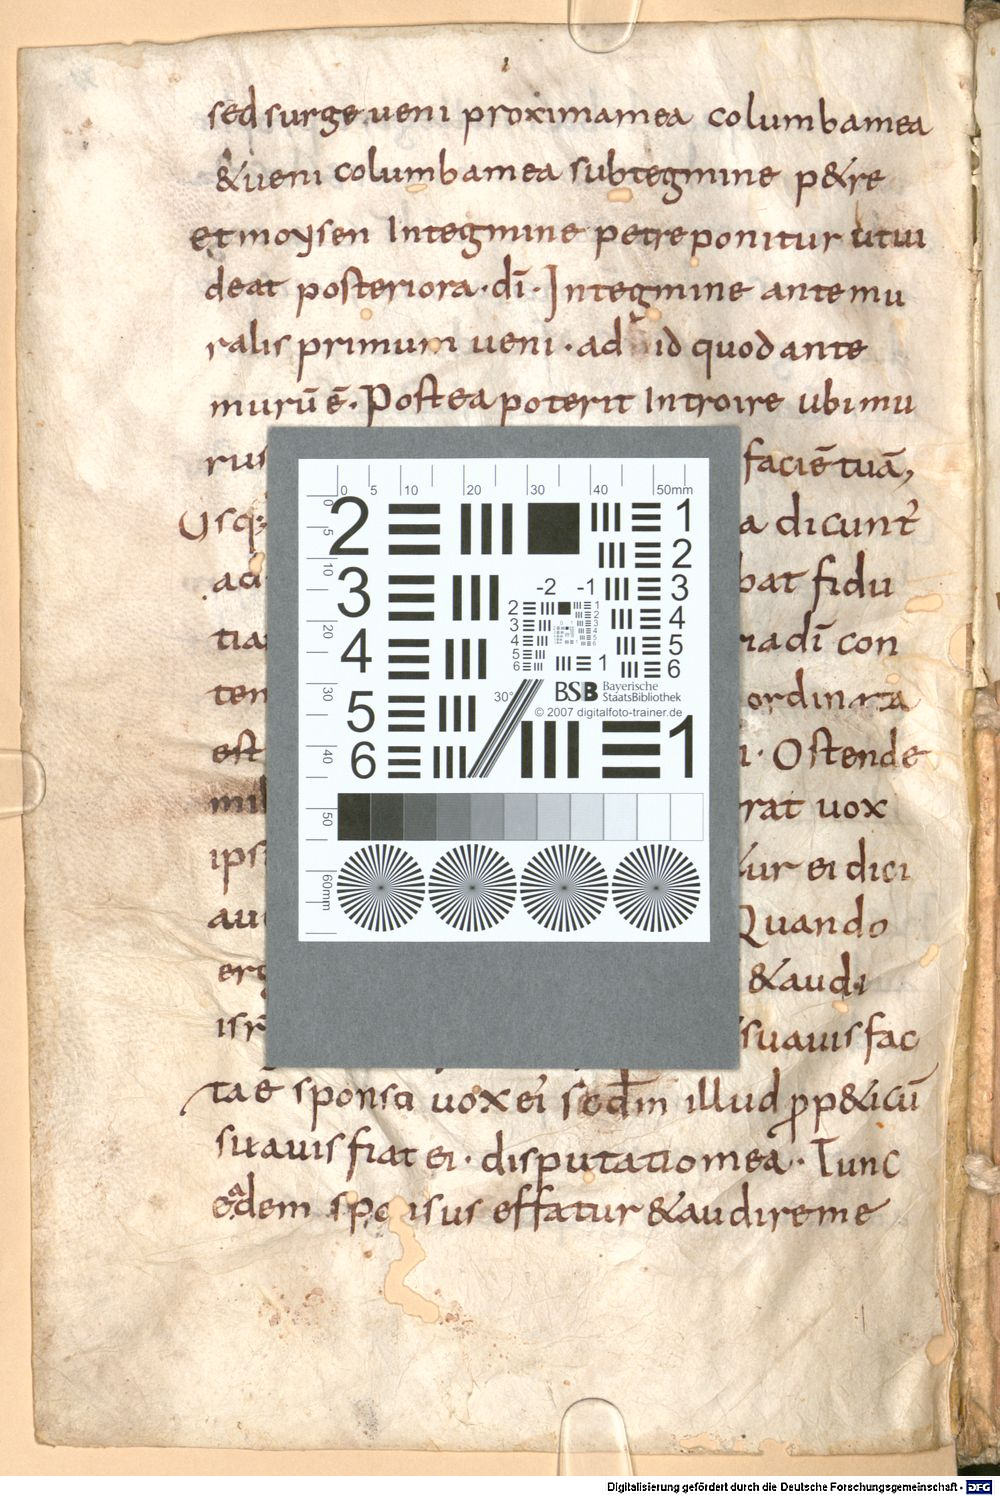 sed surge ueni proxima mea columba mea
& ueni columba mea sub tegmine p&re
et moysen In tegmine petre ponitur ut ui
deat posteriora · dī · In tegmine ante mu
ralis primum ueni · ad id quod ante
murū ē · Postea poterit Introire ubi mu
rus faciē tuā,
Usq; a dicunt
ad bat fidu
tiam ria dī con
tem ordinata
est · Ostende
mihi rat uox
ipsi tur ei dici
au Quando
erg & audi
isr suauis fac
ta e sponsa uox ei sedm illud pp&icū
suauis fiat ei · disputatio mea · Tunc
eadem sponsus effatur & audire me
0 5 10 20 30 40 50mm
0 5 10 20 30 40 50 60mm
2 3 4 5 6
1 2 3 4 5 6
-2 -1
2 3 4 5 6
1
1
30°
BSB Bayerische StaatsBibliothek
© 2007 digitalfoto-trainer.de
Digitalisierung gefördert durch die Deutsche Forschungsgemeinschaft - DFG